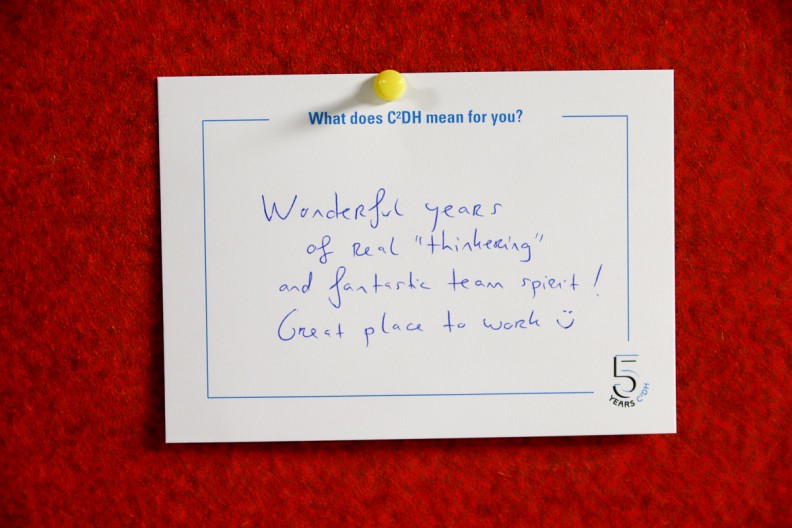 What does C²DH mean for you?
Wonderful years
of real "thinkering"
and fantastic team spirit!
Great place to work ü
5
YEARS C²DH